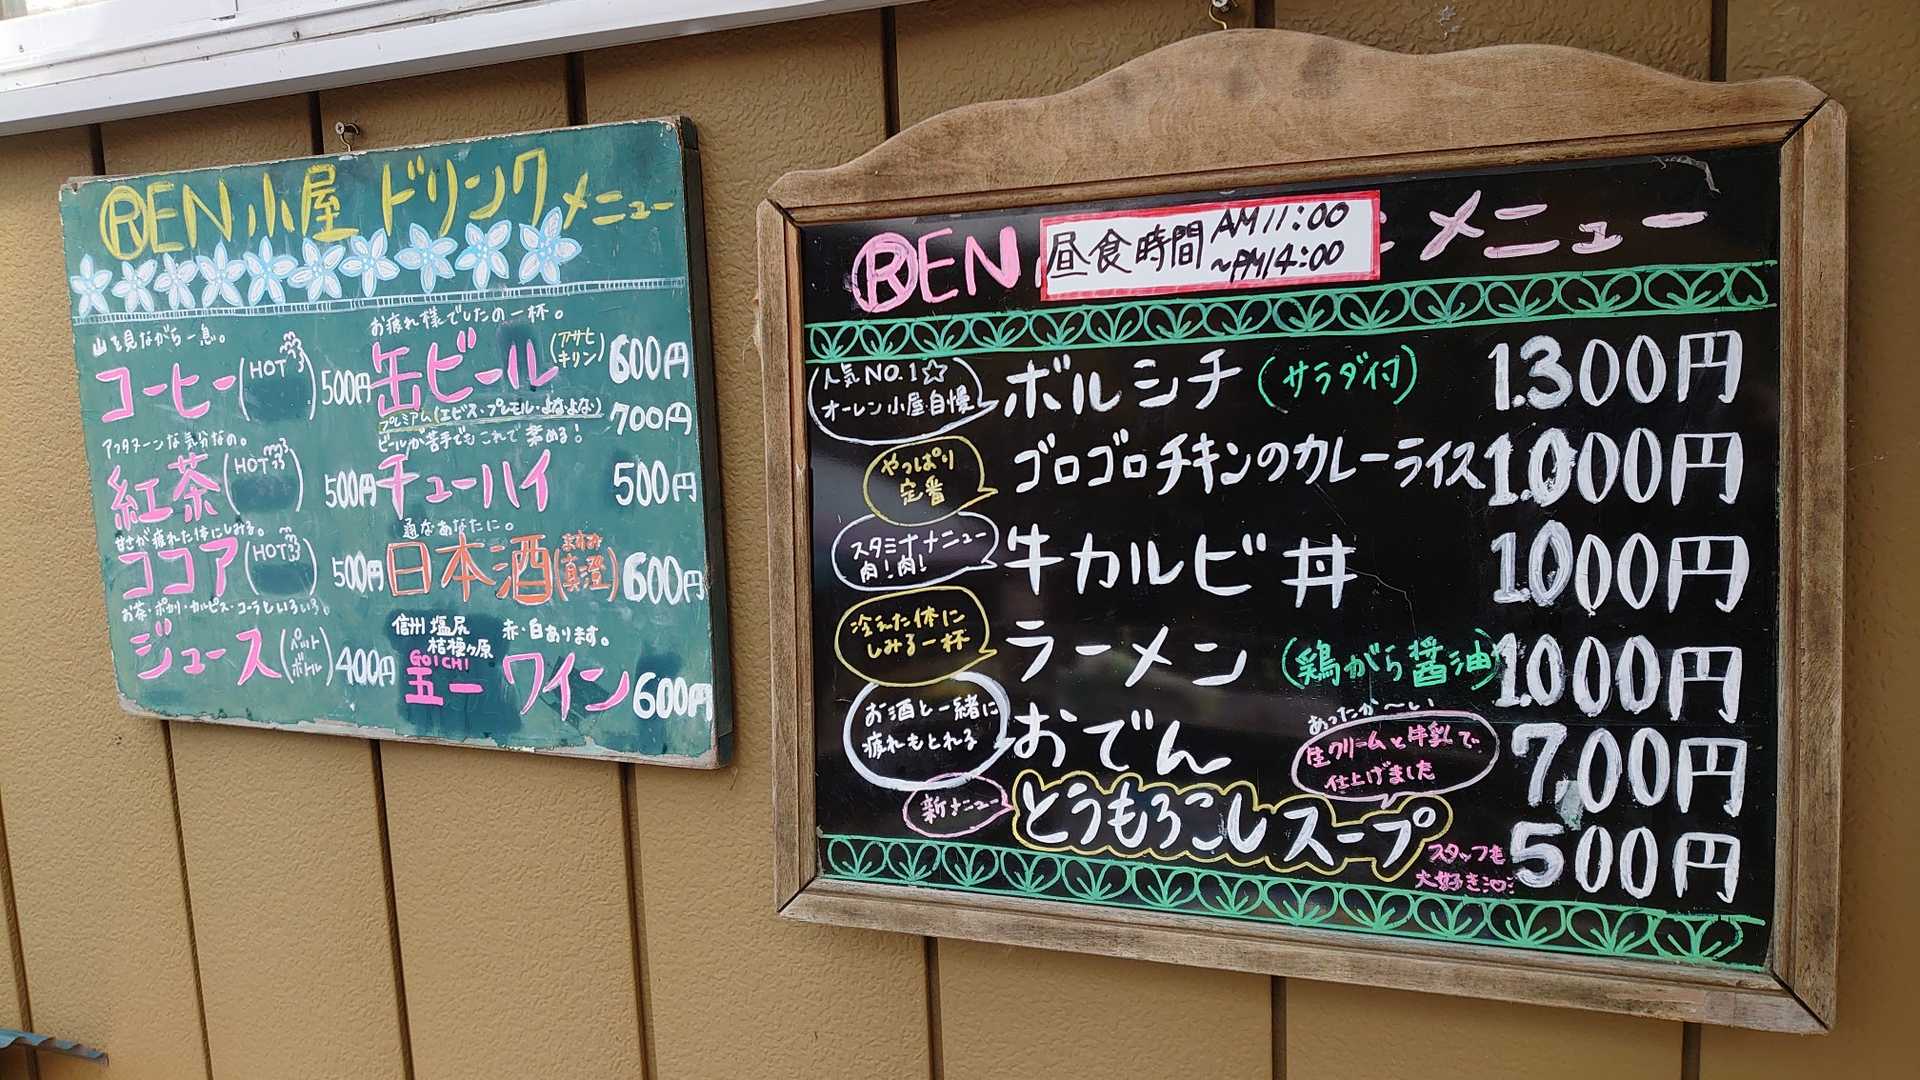 ⓇEN小屋 ドリンクメニュー
山を見ながら一息。
コーヒー(HOT) 500円
アフタヌーンな気分なの。
紅茶(HOT) 500円
甘さが疲れた体にしみる。
ココア(HOT) 500円
お茶・ポカリ・カルピス・コーラしいろいろ。
ジュース(ペットボトル) 400円
お疲れ様でしたの一杯。
缶ビール(アサヒ キリン) 600円
プレミアム(エビス・プレモル・よなよな) 700円
ビールが苦手でもこれで楽める!
チューハイ 500円
通なあなたに。
日本酒(ますみ 真澄) 600円
信州 塩尻 桔梗ヶ原 赤・白あります。
GOICHI
五一ワイン 600円
ⓇEN メニュー
昼食時間 AM11:00
~PM14:00
人気NO.1☆
オーレン小屋自慢
ボルシチ (サラダ付) 1.300円
やっぱり
定番
ゴロゴロチキンのカレーライス 1.000円
スタミナメニュー
肉!肉!
牛カルビ丼 1000円
冷えた体に
しみる一杯
ラーメン (鶏がら醤油) 1000円
お酒と一緒に
疲れもとれる
おでん 7,00円
あったか〜い
生クリームと牛乳で
仕上げました
新メニュー
とうもろこしスープ 500円
スタッフも
大好き